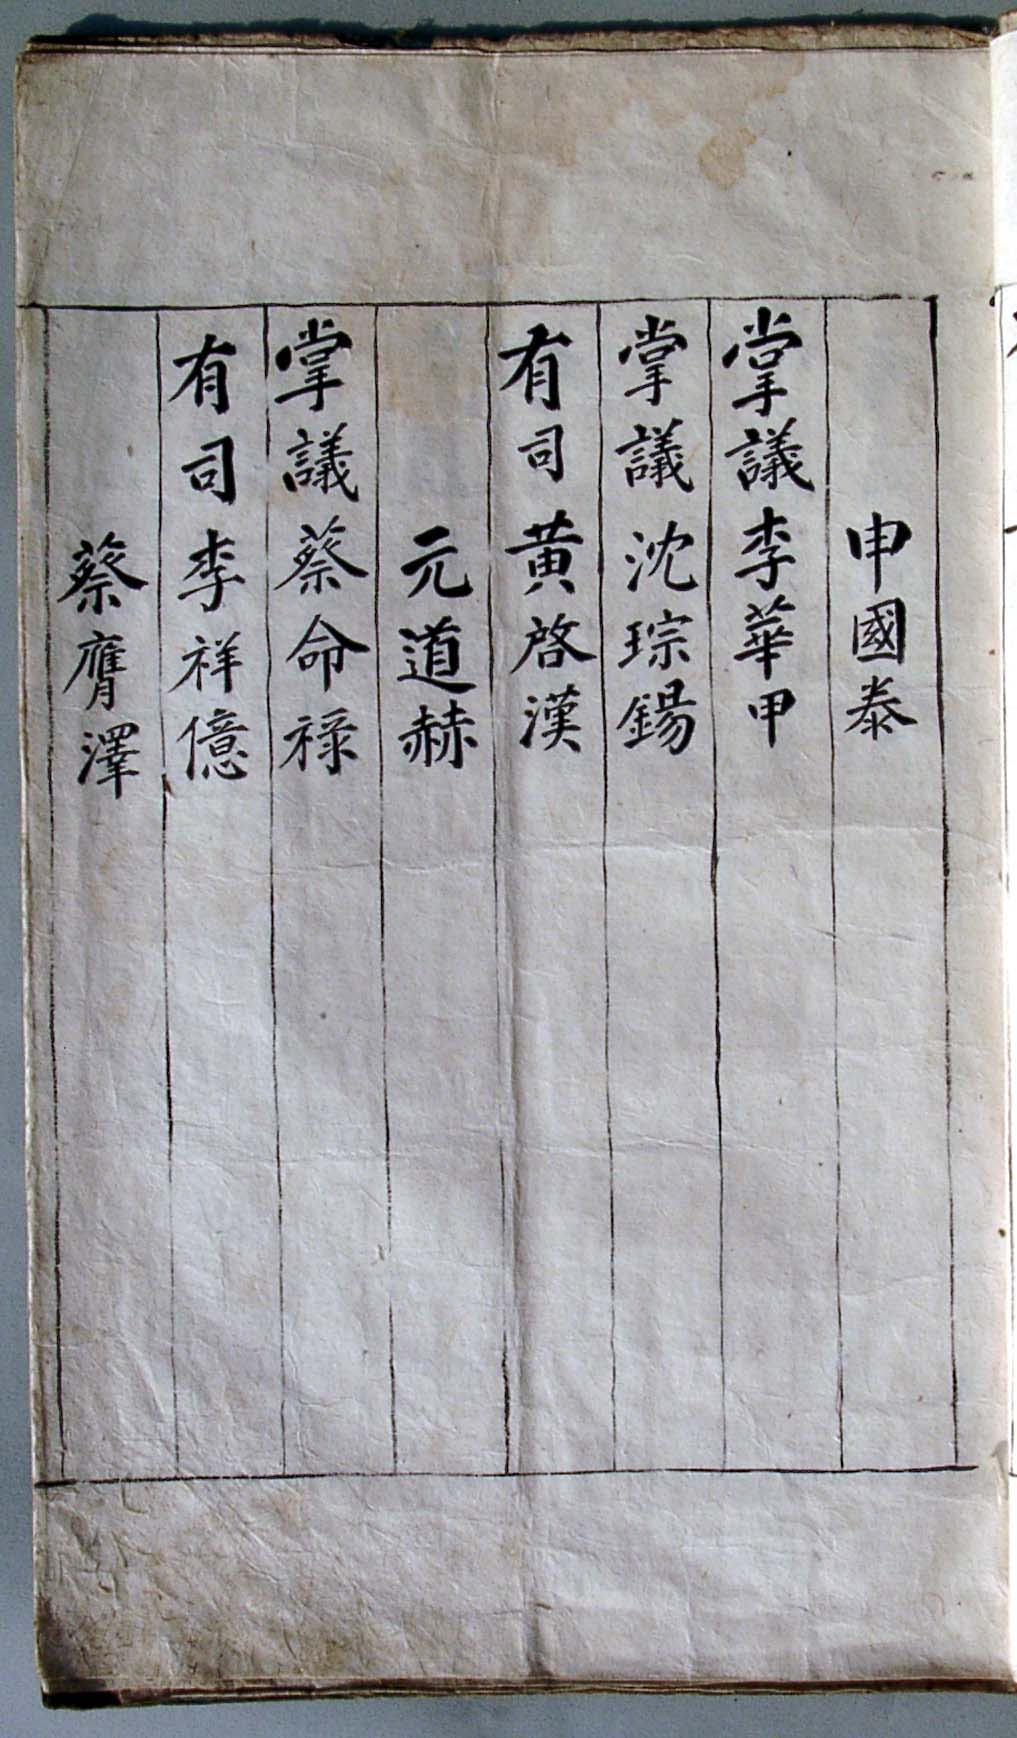 申國泰
掌議李華甲
掌議沈琮錫
有司黃啓漢
元道赫
掌議蔡命祿
有司李祥億
蔡膺澤